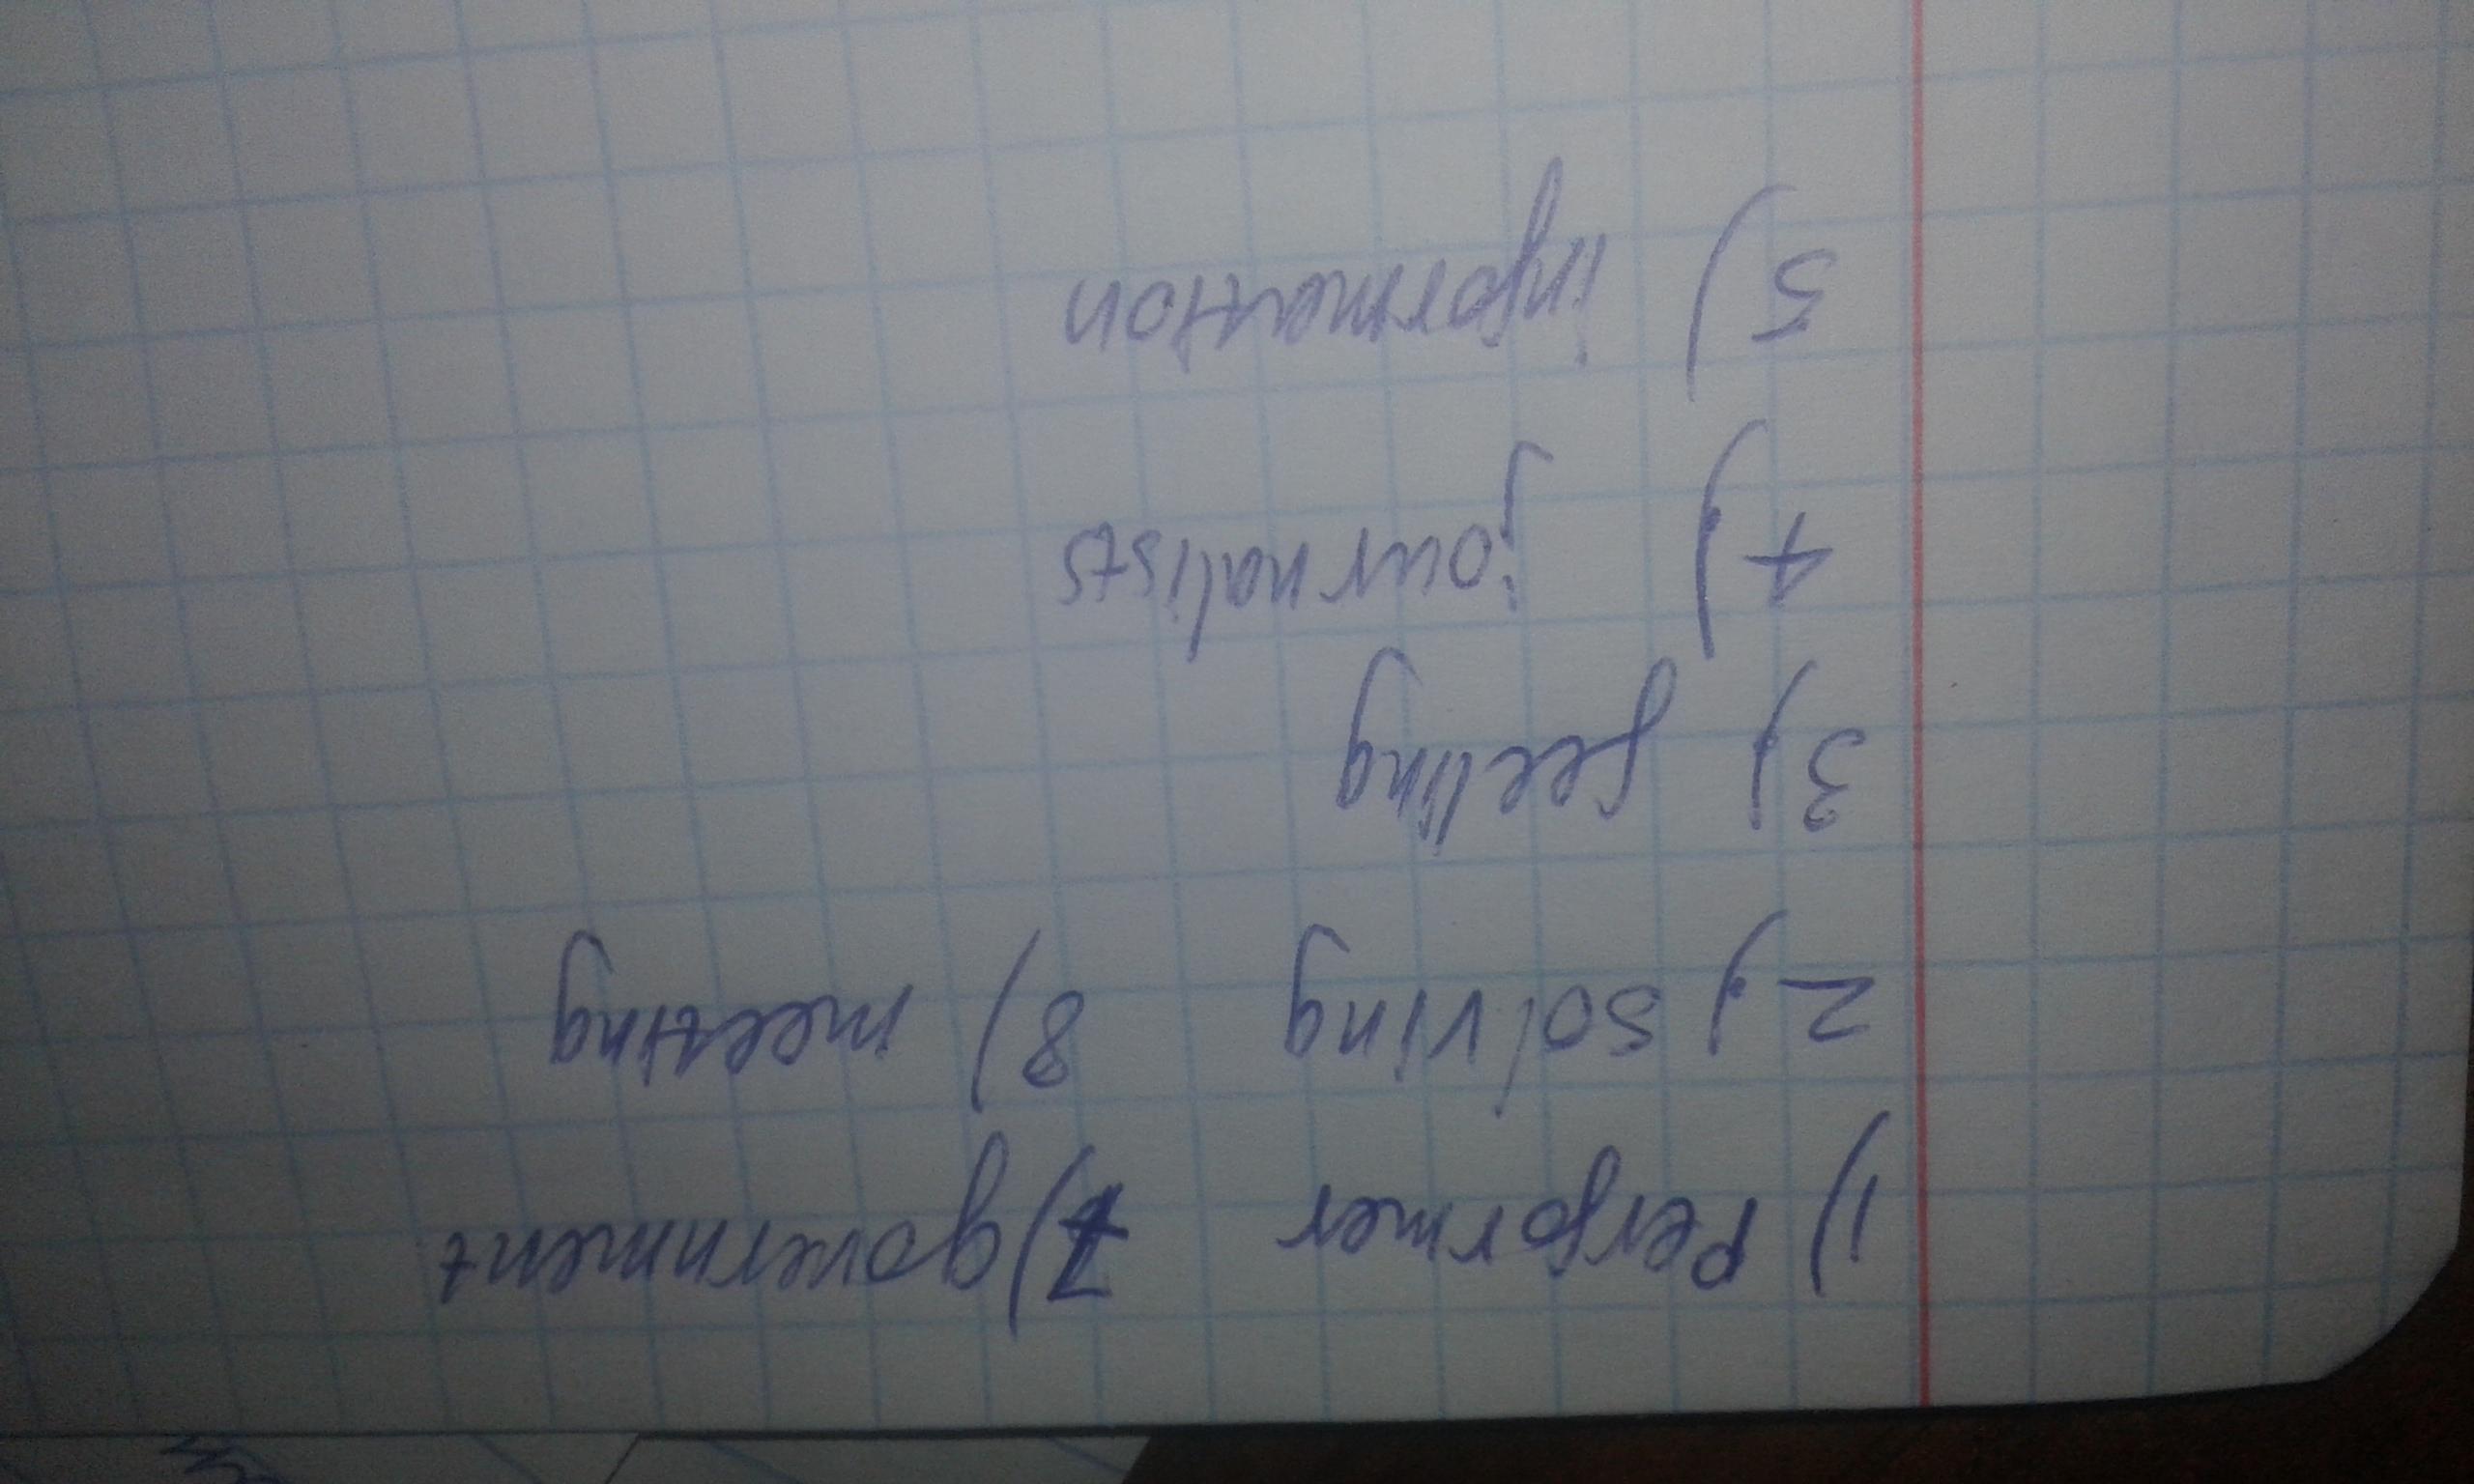 1) Performer 7) government
2) solving 8) meeting
3) feeling
4) journalists
5) information